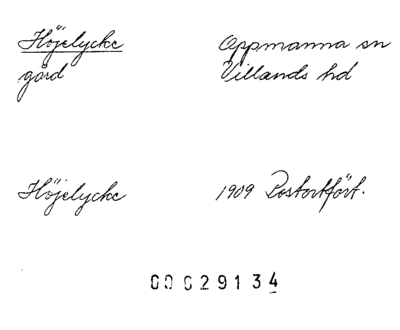 Höjelycke
gård
Oppmanna sn
Villands hd
Höjelycke
1909 Postortsfört.
00029134